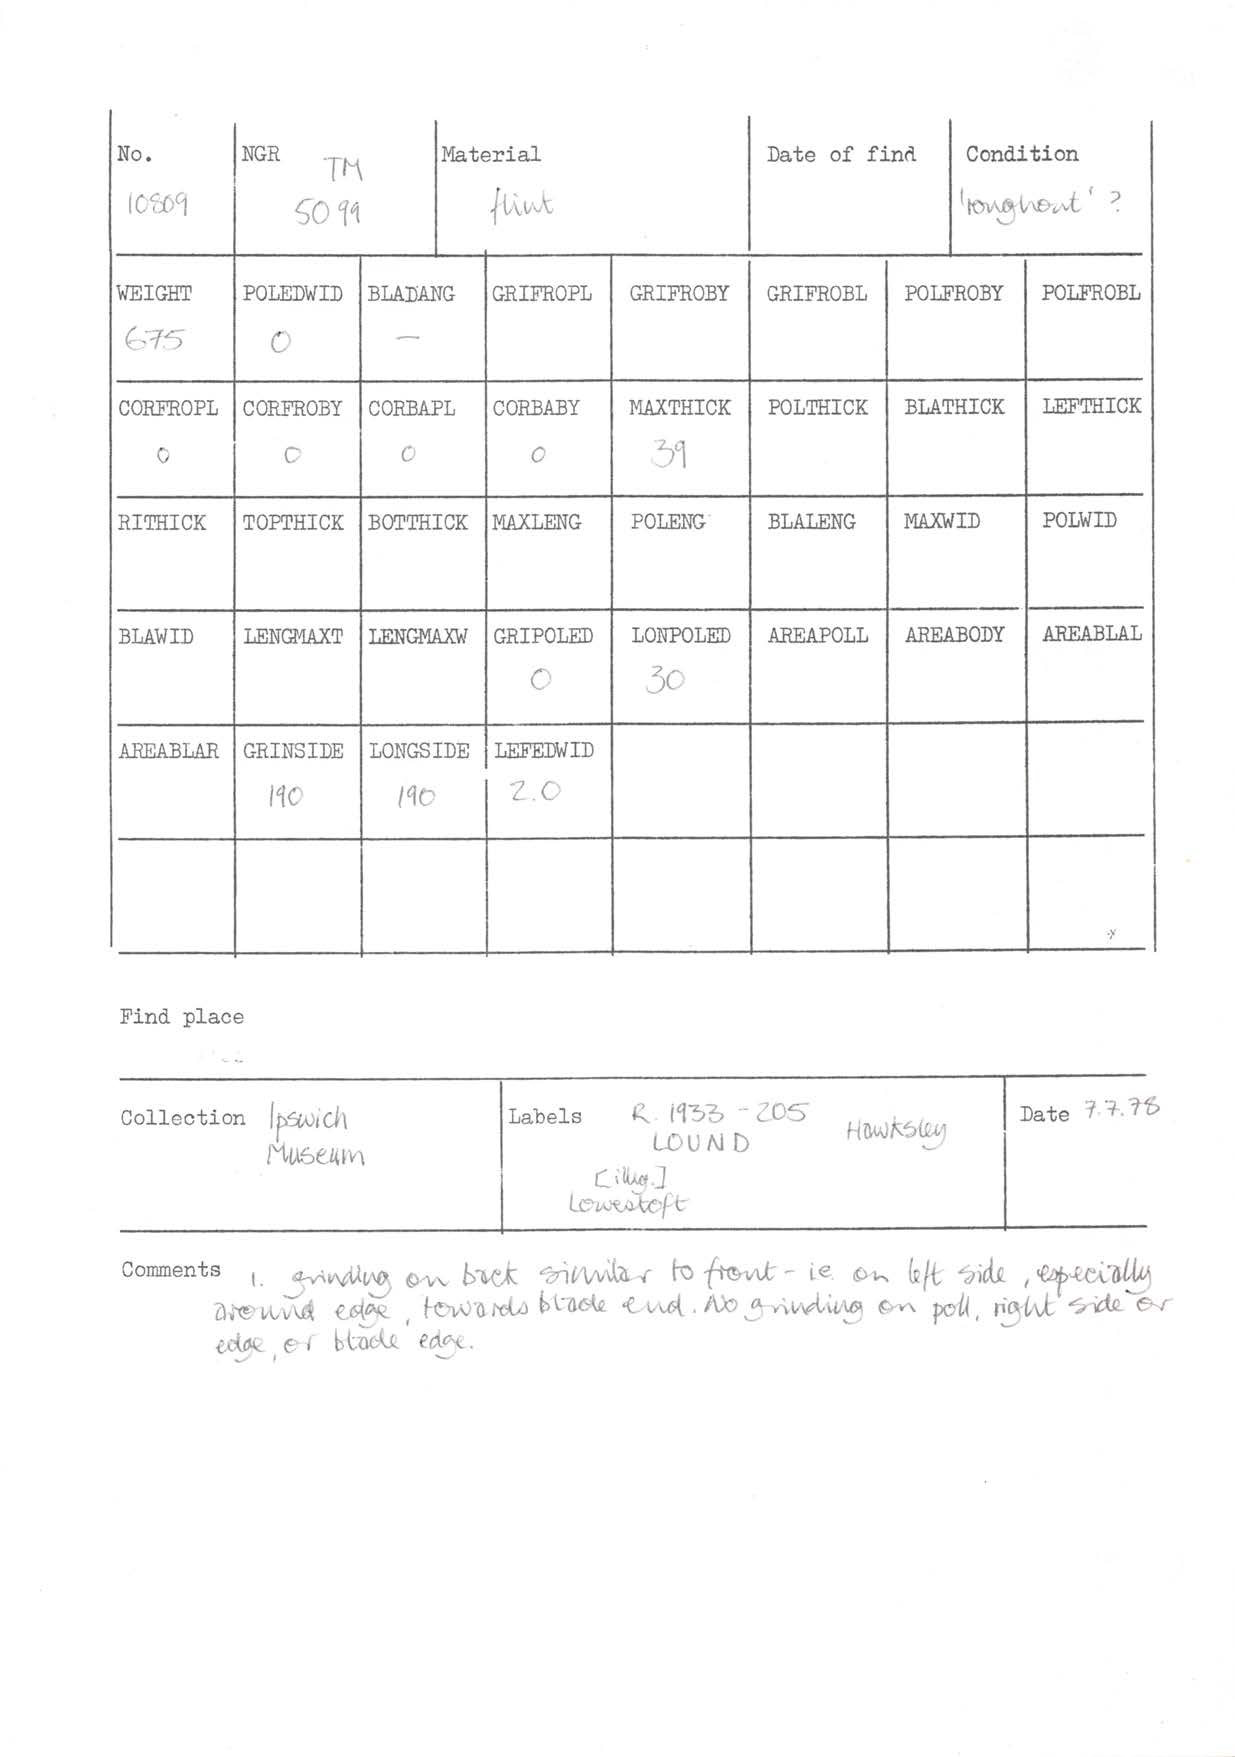 No. NGR Material Date of find Condition
TM
10809 5099 flint 'roughout' ?
WEIGHT POLEDWID BLADANG GRIFROPL GRIFROBY GRIFROBL POLFROBY POLFROBL
675 0 —
CORFROPL CORFROBY CORBAPL CORBABY MAXTHICK POLTHICK BLATHICK LEFTHICK
0 0 0 0 39
RITHICK TOPTHICK BOTTHICK MAXLENG POLENG BLALENG MAXWID POLWID
BLAWID LENGMAXT LENGMAXW GRIPOLED LONPOLED AREAPOLL AREABODY AREABLAL
0 30
AREABLAR GRINSIDE LONGSIDE LEFEDWID
190 190 2.0
Find place
Collection Ipswich Museum
Labels R. 1933 - 205
LOUND Hawksley
[illeg.]
Lowestoft
Date 7.7.78
Comments 1. grinding on back similar to front - ie. on left side, especially
around edge, towards blade end. No grinding on poll, right side or
edge, or blade edge.